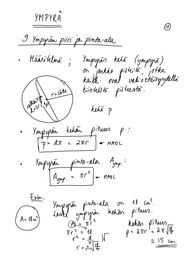 YMPYRÄ
I Ympyrän piiri ja pinta-ala
• Määritelmä: Ympyrän kehä (ympyrä)
on joukko pisteitä, jotka
kaikki ovat vakioetäisyydellä
kiinteästä pisteestä.
kehä p
• Ympyrän kehän pituus p:
p = πd = 2πr ← MAOL
• Ympyrän pinta-ala Aymp.:
Aymp. = πr² ← MAOL
Esim.
Ympyrän pinta-ala on 18 cm².
Laske ympyrän kehän pituus.
A = 18 cm²
A = πr²
πr² = 18
kehän pituus
p = 2πr
≈ 15 cm